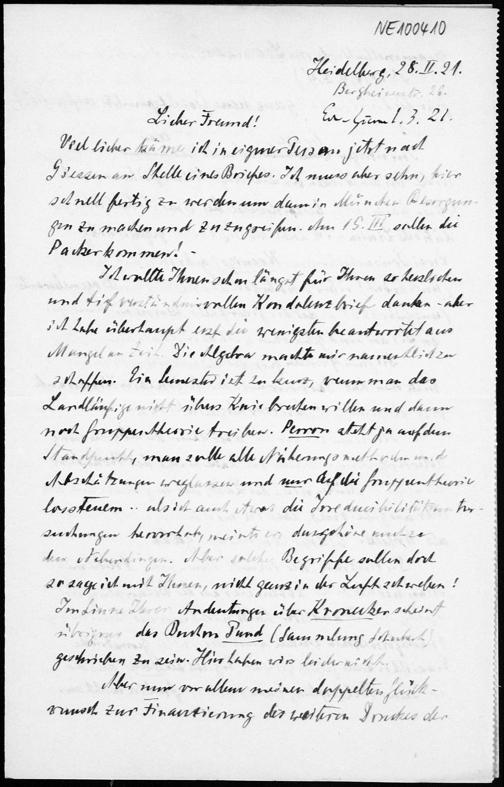 NE100410
Heidelberg, 28. II. 21.
Bergheimerstr.
1. 3. 21.
Lieber Freund!
Viel lieber käme ich in eigner Person jetzt nach
Giessen an Stelle eines Briefes. Ich muss aber sehn, hier
schnell fertig zu werden um dann in München Besorgun-
gen zu machen und zuzugreifen. Am 15. III sollen die
Packer kommen! -
Ich wollte Ihnen schon längst für Ihren so herzlichen
und tief verständnisvollen Kondolenzbrief danken - aber
ich habe überhaupt erst die wenigsten beantwortet aus
Mangel an Zeit. Die Algebra machte mir namentlich zu
schaffen. Ein Semester ist zu kurz, wenn man das
Landläufige nicht übers Knie brechen will en und dann
noch Gruppentheorie treiben. Perron steht ja auf dem
Standpunkt, man solle alle Näherungsmethoden und
Abschätzungen weglassen und nur auf die Gruppentheorie
lossteuern .. als ich auch etwas die Irreducibilitätsunter-
suchungen hervorhob, meinte er, das gehöre auch zu
den Nebendingen. Aber solche Begriffe sollen doch
so sage ich mit Ihnen, nicht ganz in der Luft schweben!
Im Sinne Ihrer Andeutungen über Kronecker scheint
übrigens das Buch von (Sammlung
geschrieben zu sein. Hier haben wirs leider nicht.
Aber nun vor allem meinen doppelten Glück-
wunsch zur Finanzierung des weiteren Druckes der